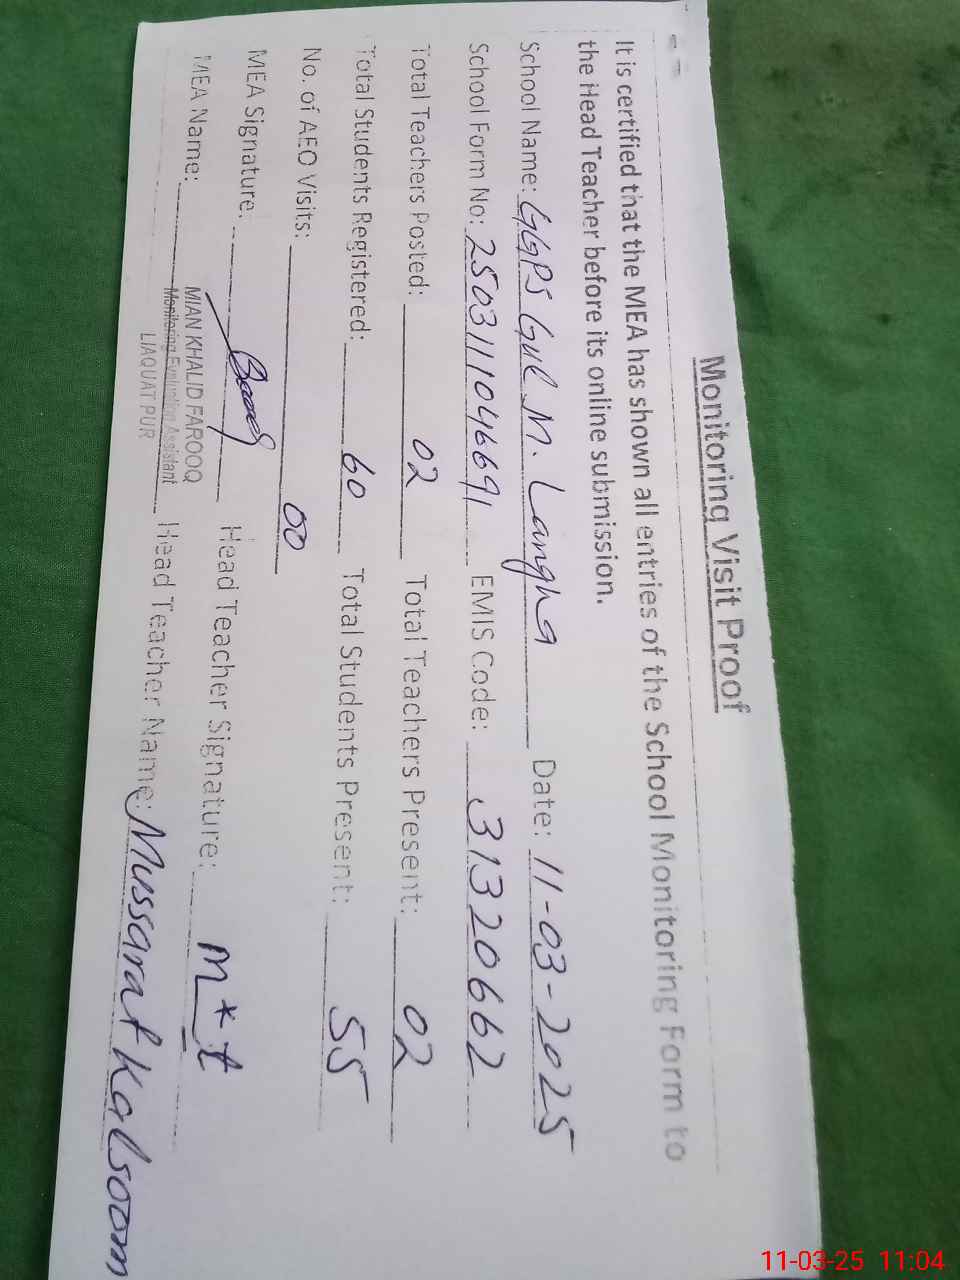 Monitoring Visit Proof
It is certified that the MEA has shown all entries of the School Monitoring Form to
the Head Teacher before its online submission.
School Name: GGPS Gul M. Langha Date: 11-03-2025
School Form No: 2503111046691 EMIS Code: 31320662
Total Teachers Posted: 02 Total Teachers Present: 02
Total Students Registered: 60 Total Students Present: 55
No. of AEO Visits: 00
MEA Signature. Head Teacher Signature: m*t
MEA Name: MIAN KHALID FAROOQ Head Teacher Name: Mussarat Kalsoom
Monitoring Evaluation Assistant
LIAQUAT PUR
11-03-25 11:04